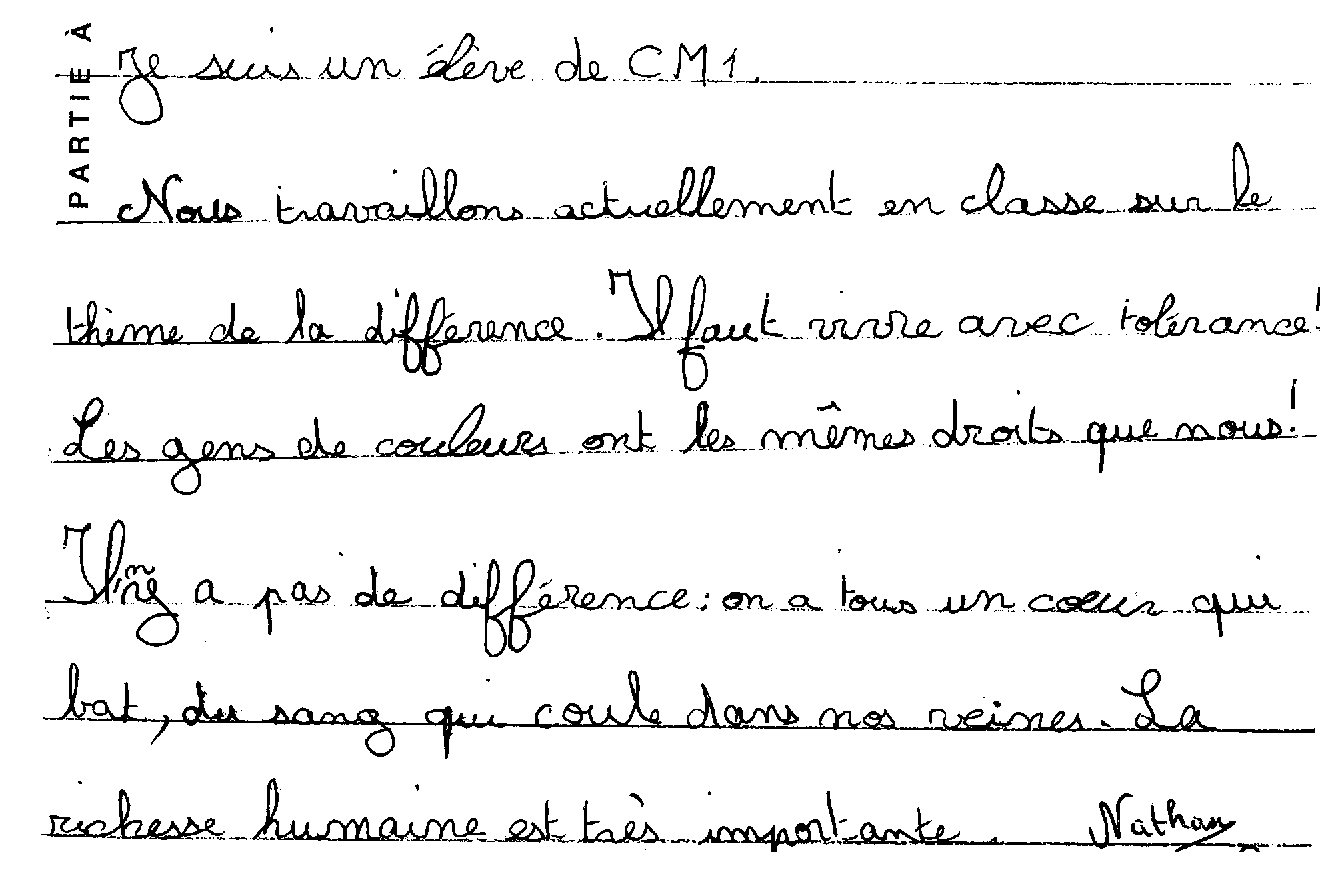 PARTIE À
Je suis un élève de CM1.
Nous travaillons actuellement en classe sur le
thème de la différence. Il faut vivre avec tolérance!
Les gens de couleurs ont les mêmes droits que nous!
Il n'y a pas de différence: on a tous un coeur qui
bat, du sang qui coule dans nos veines. La
richesse humaine est très importante. Nathan